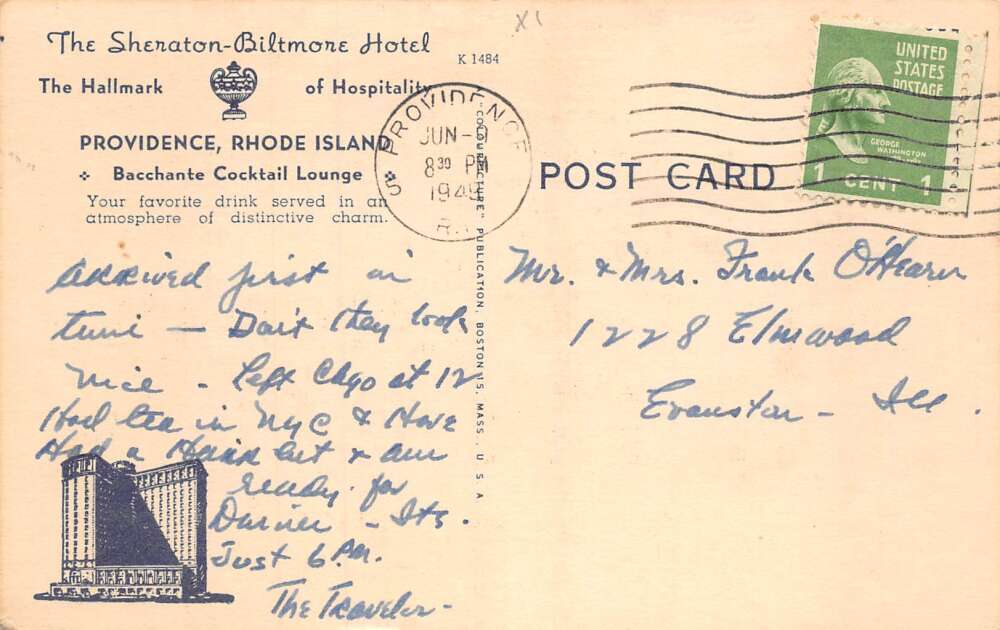 X1
The Sheraton-Biltmore Hotel
K 1484
The Hallmark of Hospitality
PROVIDENCE, RHODE ISLAND
Bacchante Cocktail Lounge
Your favorite drink served in an
atmosphere of distinctive charm.
PROVIDENCE
JUN - 1
8 30 PM
1949
R.I.
UNITED
STATES
POSTAGE
GEORGE
WASHINGTON
1 CENT 1
POST CARD
"COLOURPICTURE" PUBLICATION, BOSTON 15, MASS., U. S. A
Arrived first in
time — Don't they look
nice - Left Chgo at 12
Had tea in NYC & Have
Had a Hair cut & am
ready for
Dinner - Its.
Just 6 P.M.
The Traveler -
Mr. & Mrs. Frank O'Hearn
1228 Elmwood
Evanston - Ill.